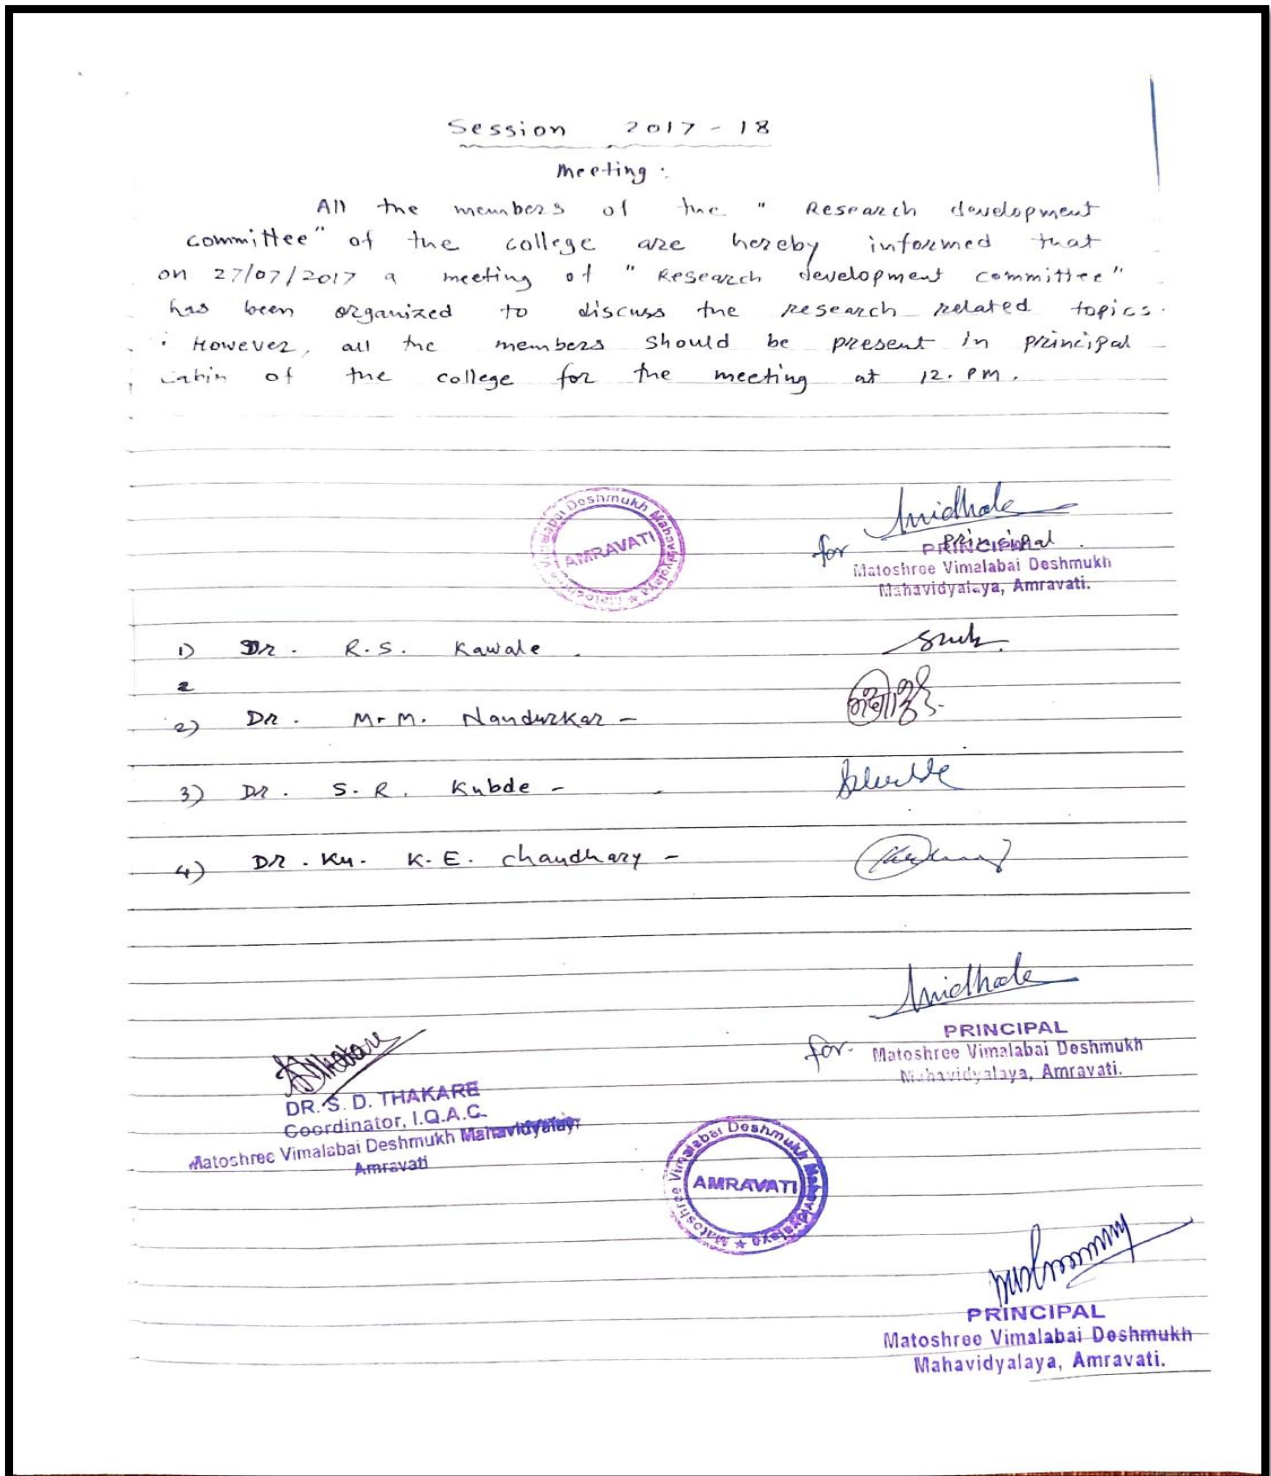 Session 2017-18
Meeting:
All the members of the " Research development
committee" of the college are hereby informed that
on 27/07/2017 a meeting of "Research development committee"
has been organized to discuss the research related topics.
However, all the members should be present in principal
cabin of the college for the meeting at 12. PM.
Matoshree Vimalabai Deshmukh Mahavidyalaya ★
AMRAVATI
for Principal
PRINCIPAL
Matoshree Vimalabai Deshmukh
Mahavidyalaya, Amravati.
1) Dr. R.S. Kawale.
2
2) Dr. M.M. Nandurkar -
3) Dr. S.R. Kubde -
4) Dr. Ku. K.E. Chaudhary -
PRINCIPAL
for. Matoshree Vimalabai Deshmukh
Mahavidyalaya, Amravati.
DR. S. D. THAKARE
Coordinator, I.Q.A.C.
Matoshree Vimalabai Deshmukh Mahavidyalay
Amravati
Matoshree Vimalabai Deshmukh Mahavidyalaya ★
AMRAVATI
PRINCIPAL
Matoshree Vimalabai Deshmukh
Mahavidyalaya, Amravati.